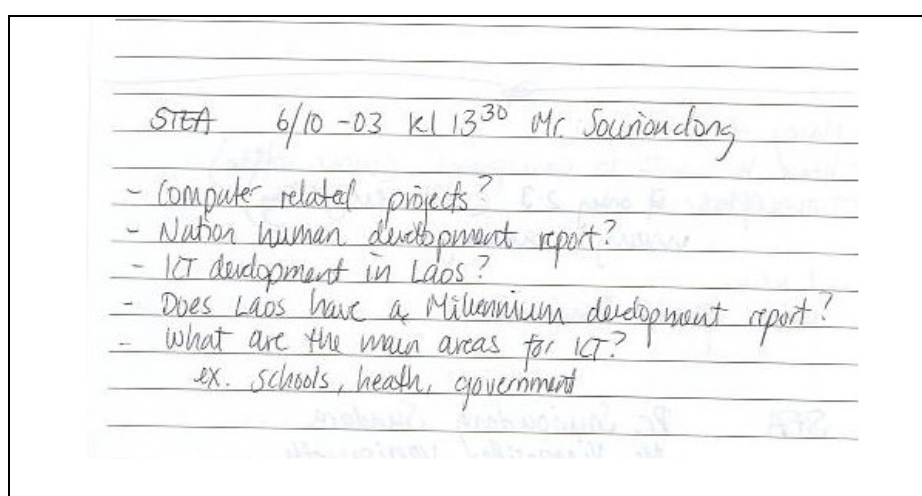 STEA 6/10 -03 kl 13³⁰ Mr. Sourioudong
- Computer related projects?
- Nation human development report?
- ICT development in Laos?
- Does Laos have a Millennium development report?
- What are the main areas for ICT?
ex. schools, heath, government